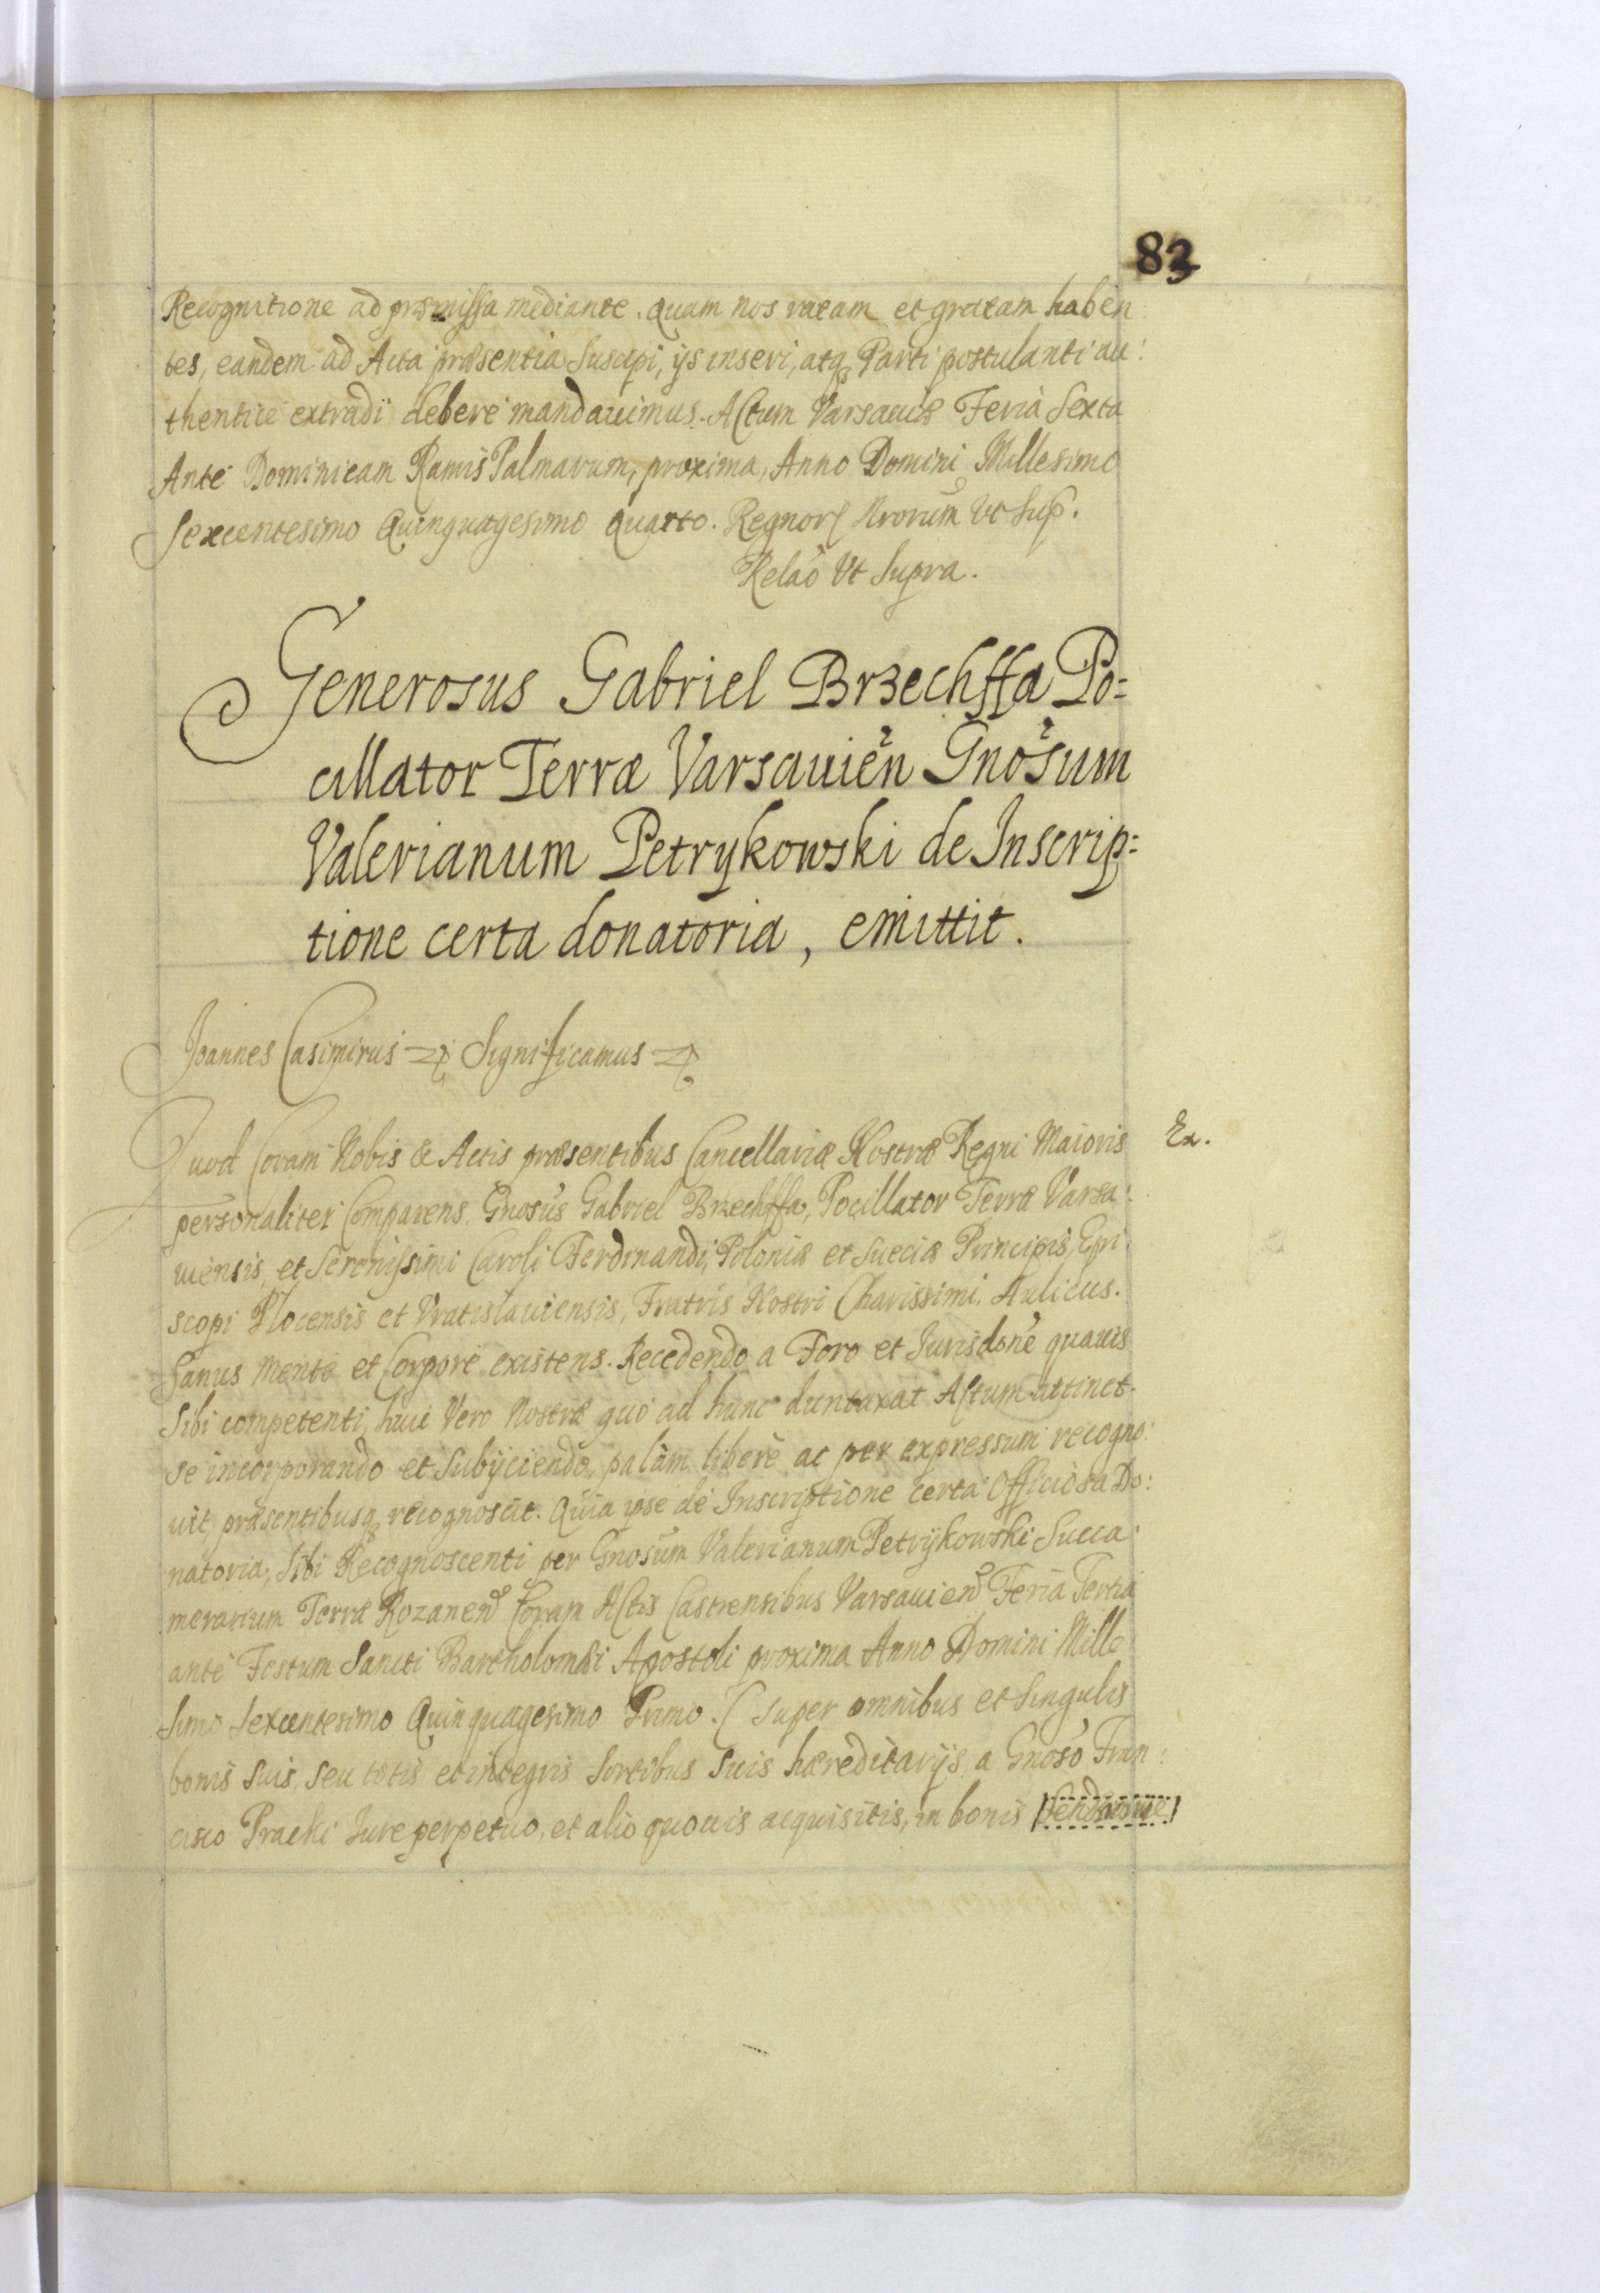 83
Recognitione ad præmissa mediante. Quam nos ratam et gratam haben:
tes, eandem ad Acta præsentia Suscipi, ijs inseri, atq3 Parti postulanti au:
thentice extradi debere mandauimus. Actum Varsauiæ Feria Sexta
Ante Dominicam Ramis Palmarum, proxima, Anno Domini Millesimo
Sexcentesimo Quinquagesimo Quarto. Regnor Nrorum Vt Sup.
Relão Vt Supra.
Generosus Gabriel Brzechffa Po=
cillator Terræ Varsauien Gnosum
Valerianum Petrykowski de Inscrip=
tione certa donatoria, emittit.
Joannes Casimirus Significamus
Quod Coram Nobis & Actis præsentibus Cancellariæ Nostræ Regni Maioris
Ex.
personaliter Comparens. Gnosus Gabriel Brzechffa, Pocillator Terræ Varsa:
uiensis, et Serenissimi Caroli Ferdinandi, Poloniæ et Sueciæ Principis, Epi
scopi Plocensis et Vratislauiensis, Fratris Nostri Charissimi. Aulicus.
Sanus Mente et Corpore existens. Recedendo a Foro et Jurisdone quauis
Sibi competenti, huic Vero Nostræ quo ad hunc duntaxat Actum attinet
se incorporando et Subijciendo, palàm liberè ac per expressum recogno:
uit, præsentibusq3 recognoscit. Quia ipse de Inscriptione certa Officiosa Do:
natoria, Sibi Recognoscenti per Gnosum Valerianum Petrykowski Succa:
merarium Terræ Rozanen Coram Actis Castrensibus Varsauien Feria Tertia
ante Festum Sancti Bartholomæi Apostoli proxima Anno Domini Mille
simo Sexcentesimo Quinquagesimo Primo. ( Super omnibus et Singulis
bonis Suis, seu totis et integris Sortibus Suis hæreditarijs a Gnoso Fran:
cisco Pracki Jure perpetuo, et alio quouis acquisitis, in bonis